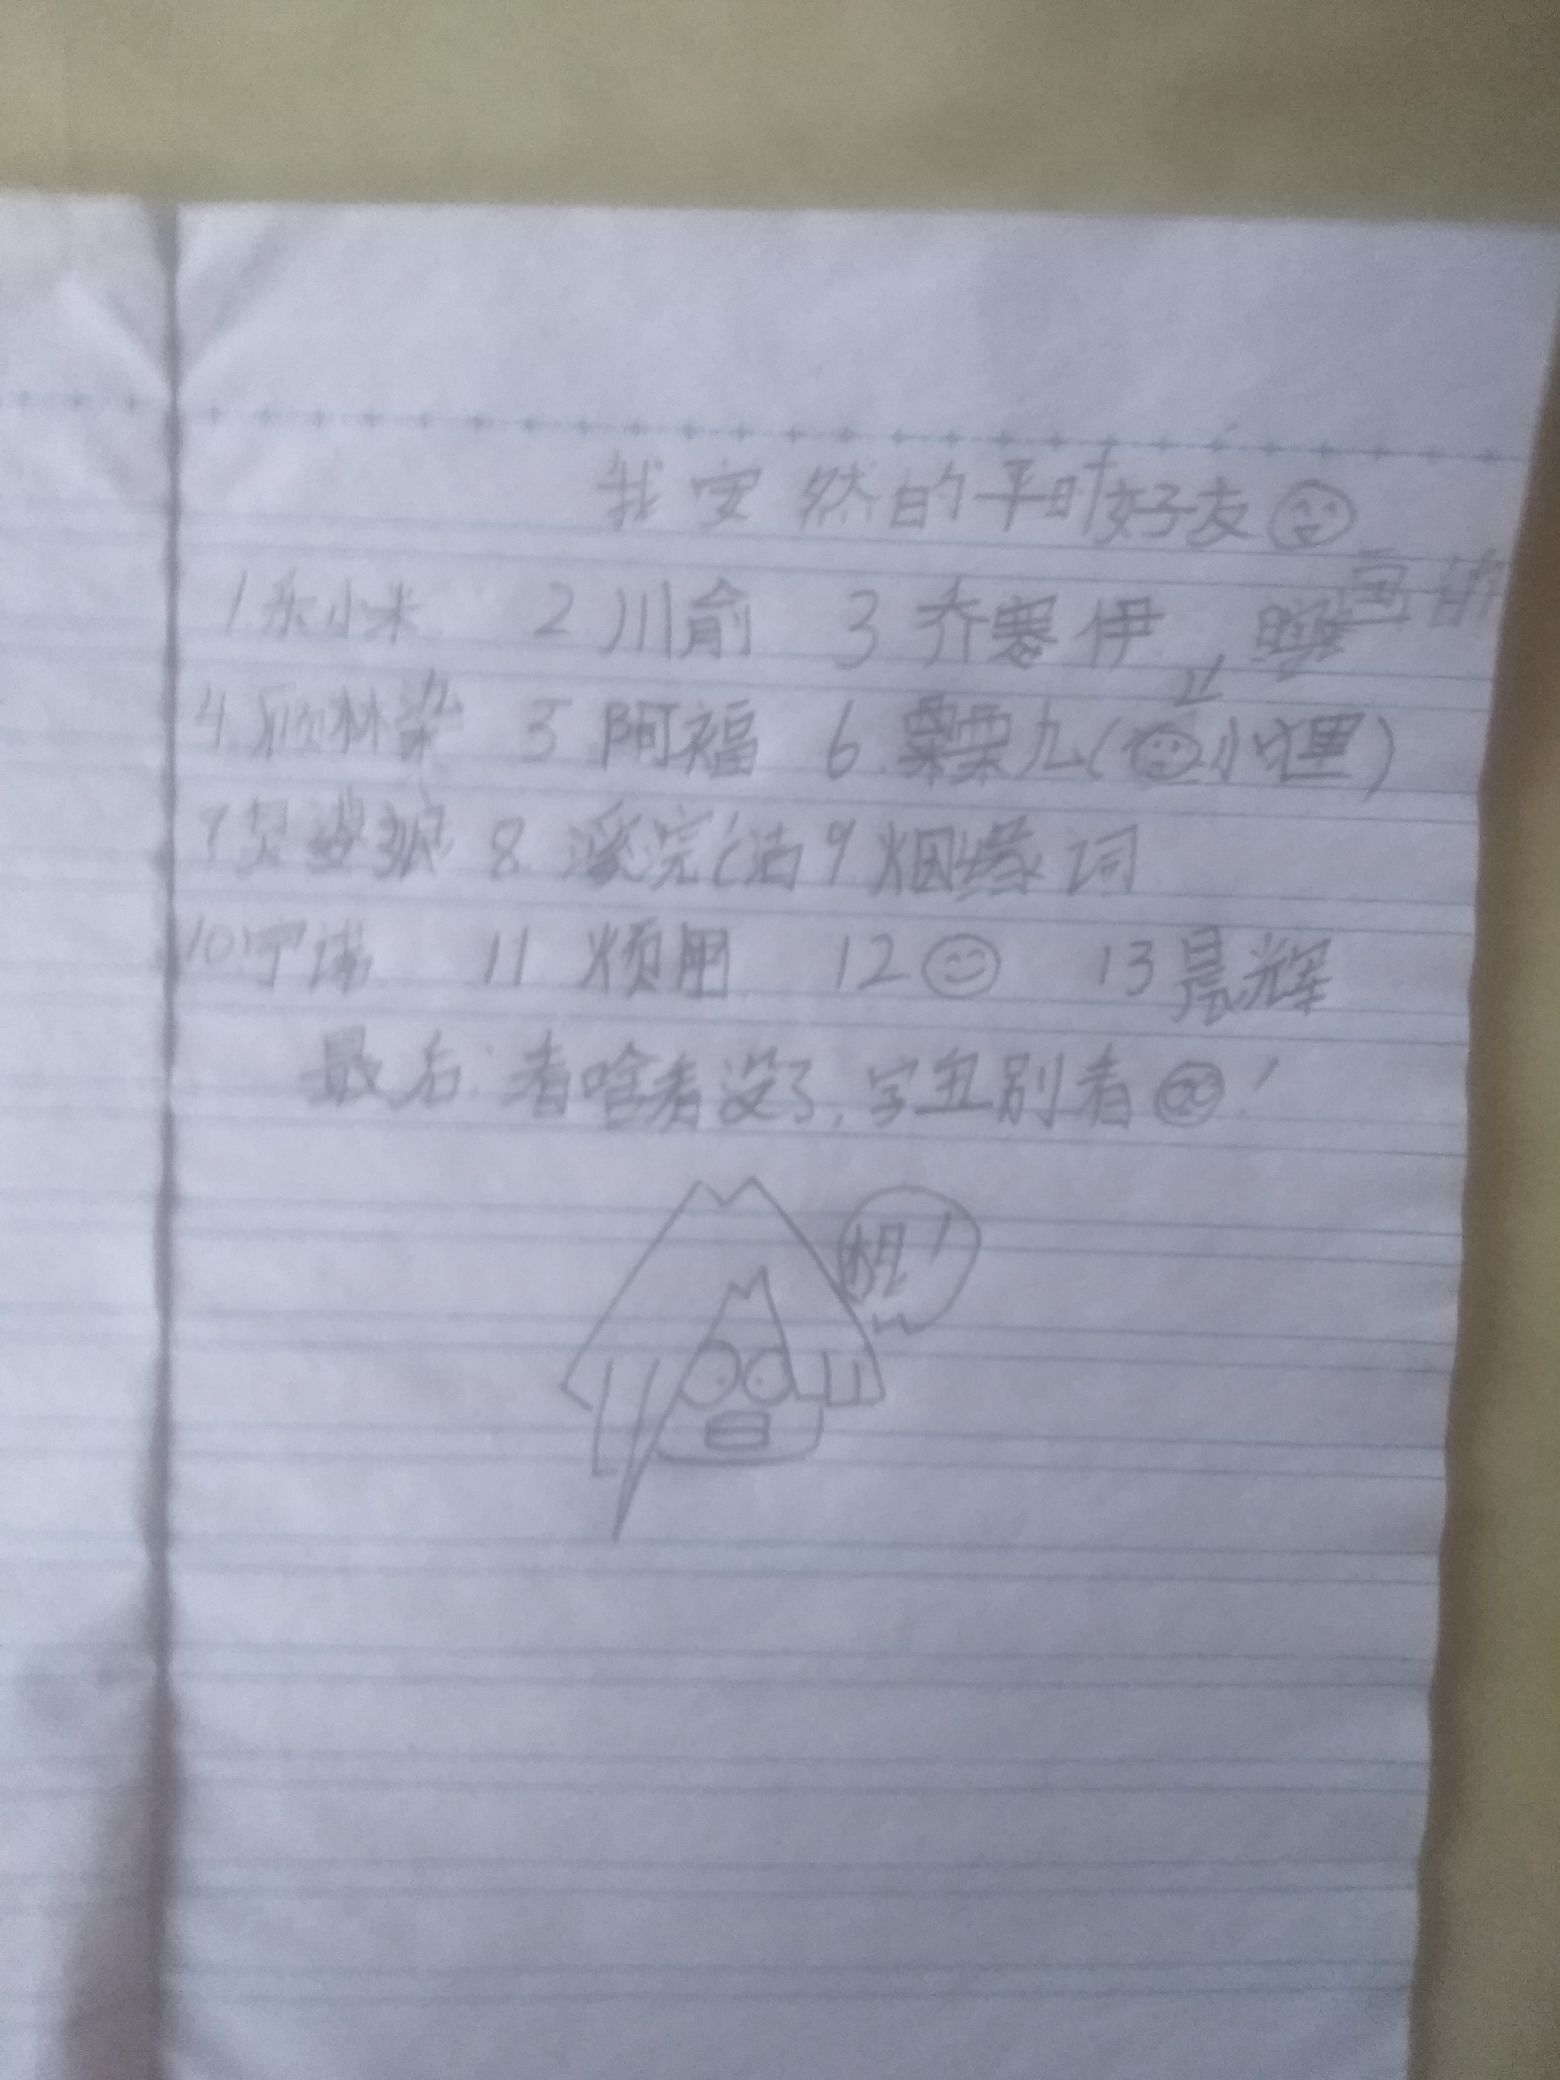 我安然的平时好友
1 乐小米 2 川俞 3 乔寒伊
4 顾林染 5 阿福 6 栗栗九(小狸)
7 梦 8 溪完沽 9 烟缘词
10 宁 11 烦用 12 13 晨辉
最后:看啥看没了,字丑别看!